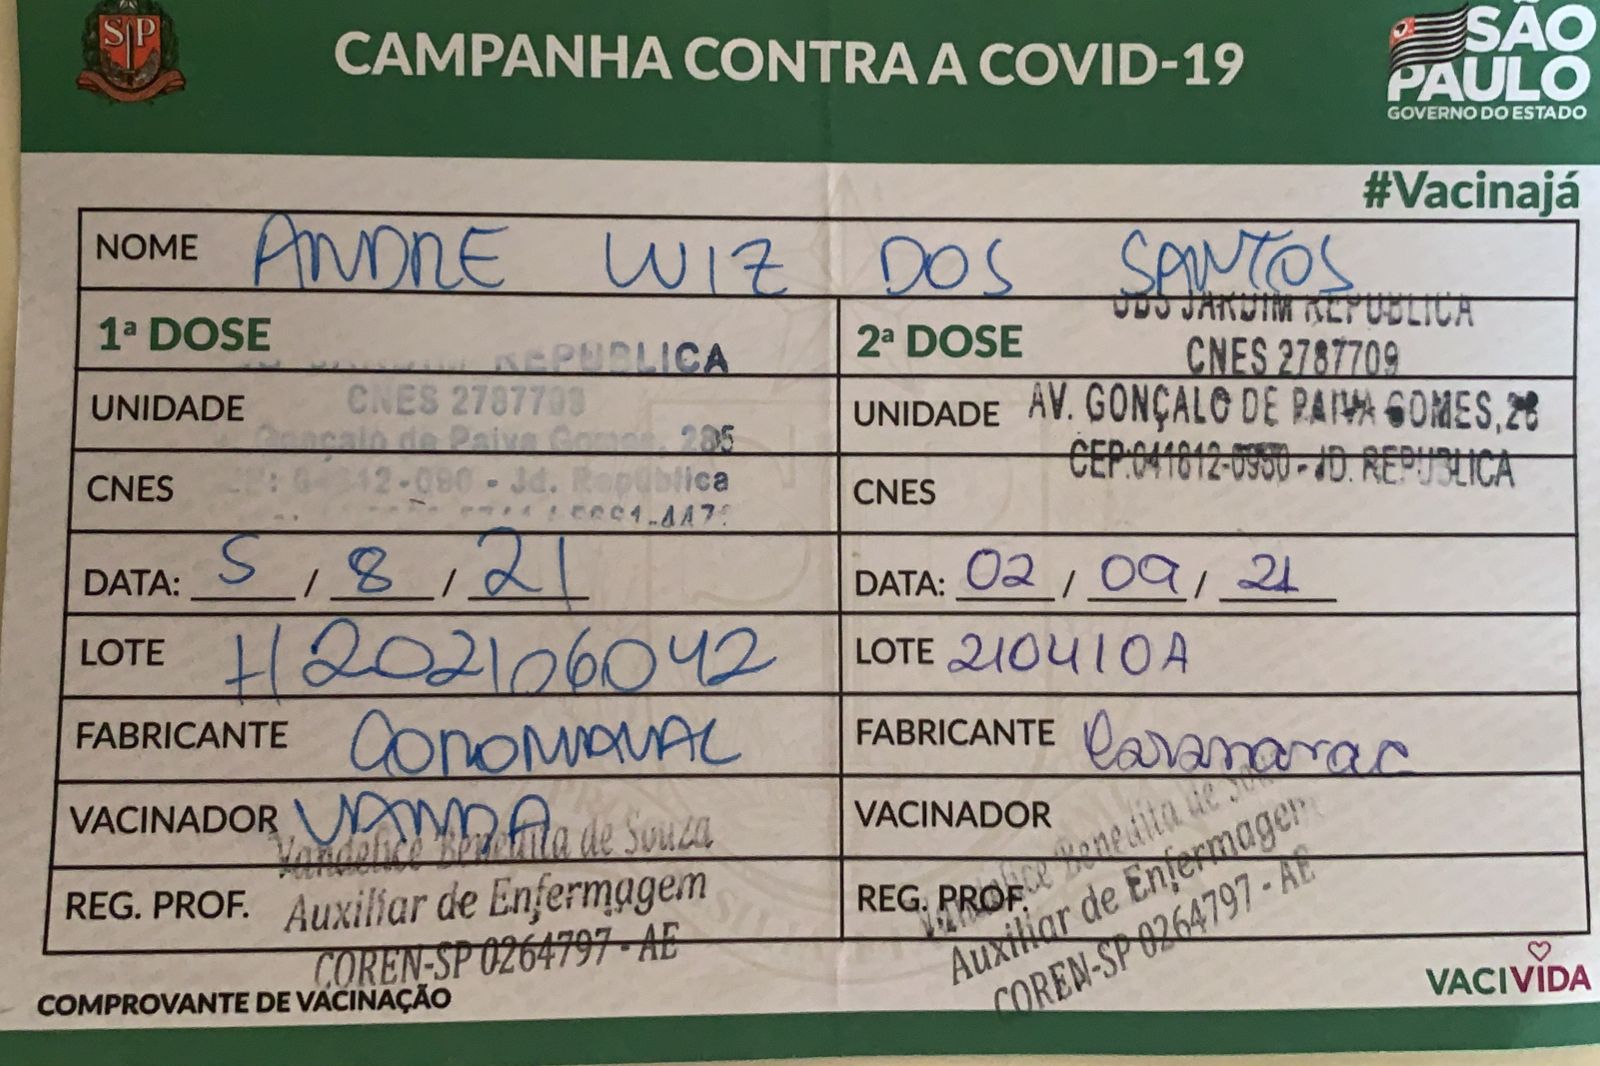 SP
CAMPANHA CONTRA A COVID-19
SÃO
PAULO
GOVERNO DO ESTADO
#Vacinajá
NOME ANDRE LUIZ DOS SANTOS
1ª DOSE
JARDIM REPUBLICA
CNES 2787709
Gonçalo de Paiva Gomes, 285
- Jd. República
UNIDADE
CNES
DATA: 5 / 8 / 21
LOTE H202106042
FABRICANTE CORONAVAC
VACINADOR VANDA
Vandelice Benedita de Souza
REG. PROF.
Auxiliar de Enfermagem
COREN-SP 0264797 - AE
2ª DOSE
UBS JARDIM REPUBLICA
CNES 2787709
UNIDADE AV. GONÇALO DE PAIVA GOMES,
JD. REPUBLICA
CNES
DATA: 02 / 09 / 21
LOTE 210410A
FABRICANTE Coronavac
VACINADOR
Vandelice Benedita de Souza
REG. PROF.
Auxiliar de Enfermagem
COREN-SP 0264797 - AE
COMPROVANTE DE VACINAÇÃO
VACIVIDA